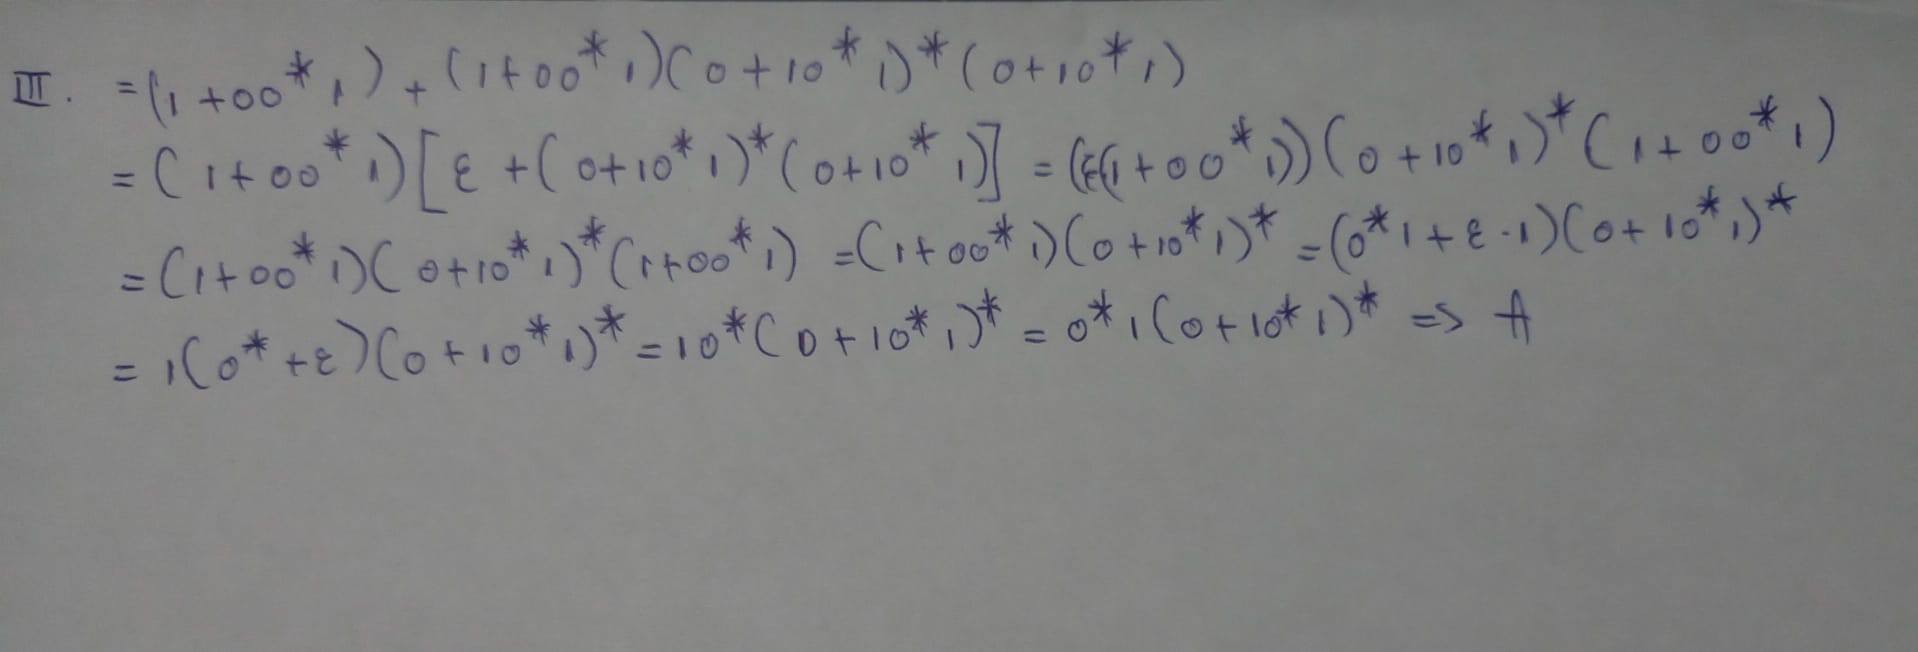 III. =(1+00*1)+(1+00*1)(0+10*1)*(0+10*1)
=(1+00*1)[ε+(0+10*1)*(0+10*1)]=(ε(1+00*1))(0+10*1)*(1+00*1)
=(1+00*1)(0+10*1)*(1+00*1) =(1+00*1)(0+10*1)* =(0*1+ε·1)(0+10*1)*
=1(0*+ε)(0+10*1)*=10*(0+10*1)*=0*1(0+10*1)* => A